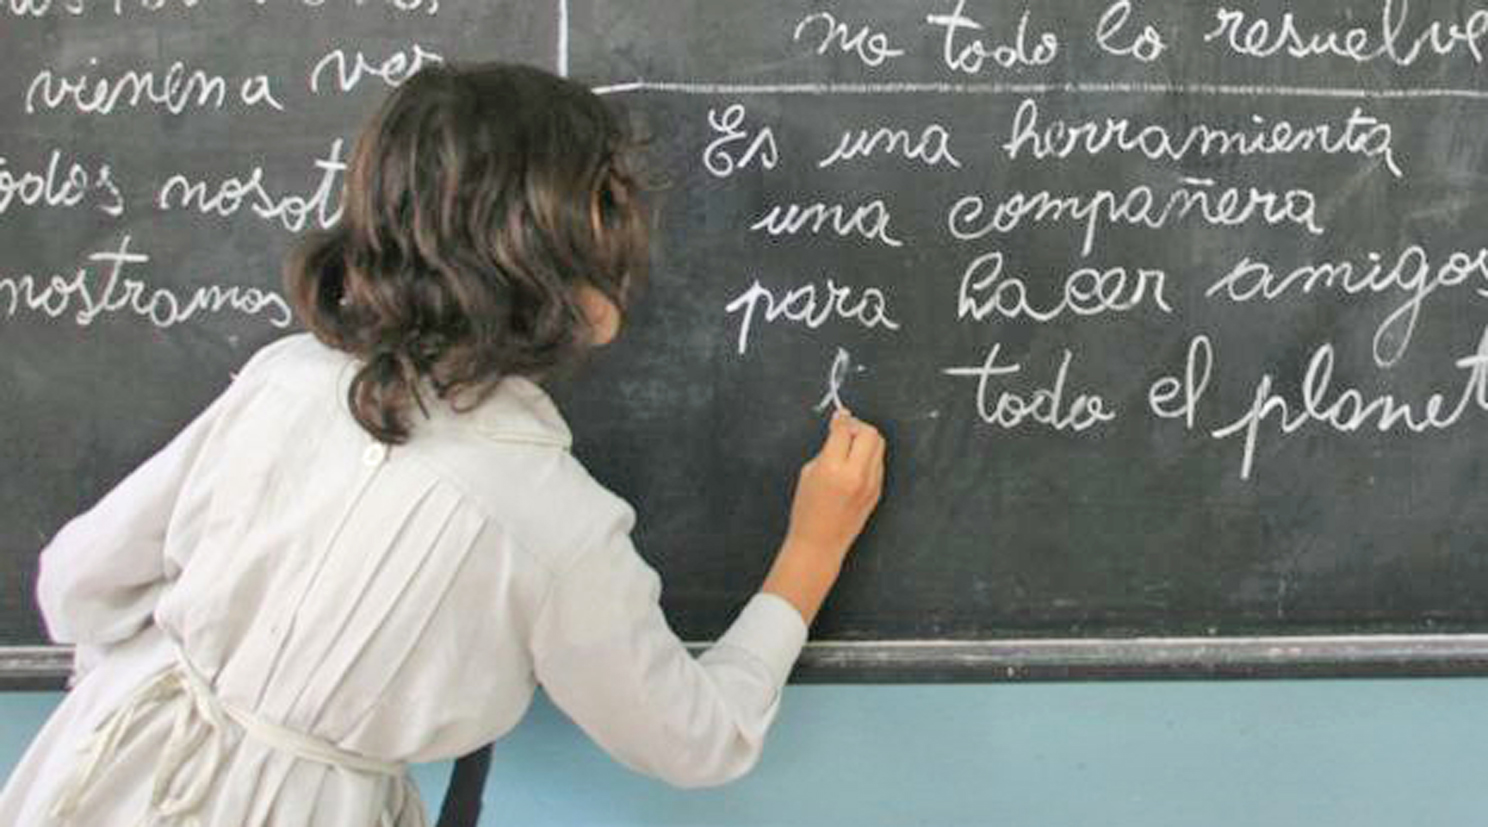 vienen a ver
mostramos
no todo lo resuelve
Es una herramienta
una compañera
para hacer amigos
todo el planet